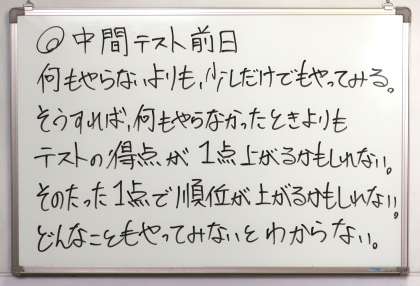 ◎中間テスト前日
何もやらないよりも、少しだけでもやってみる。
そうすれば、何もやらなかったときよりも
テストの得点が1点上がるかもしれない。
そのたった1点で順位が上がるかもしれない。
どんなこともやってみないとわからない。